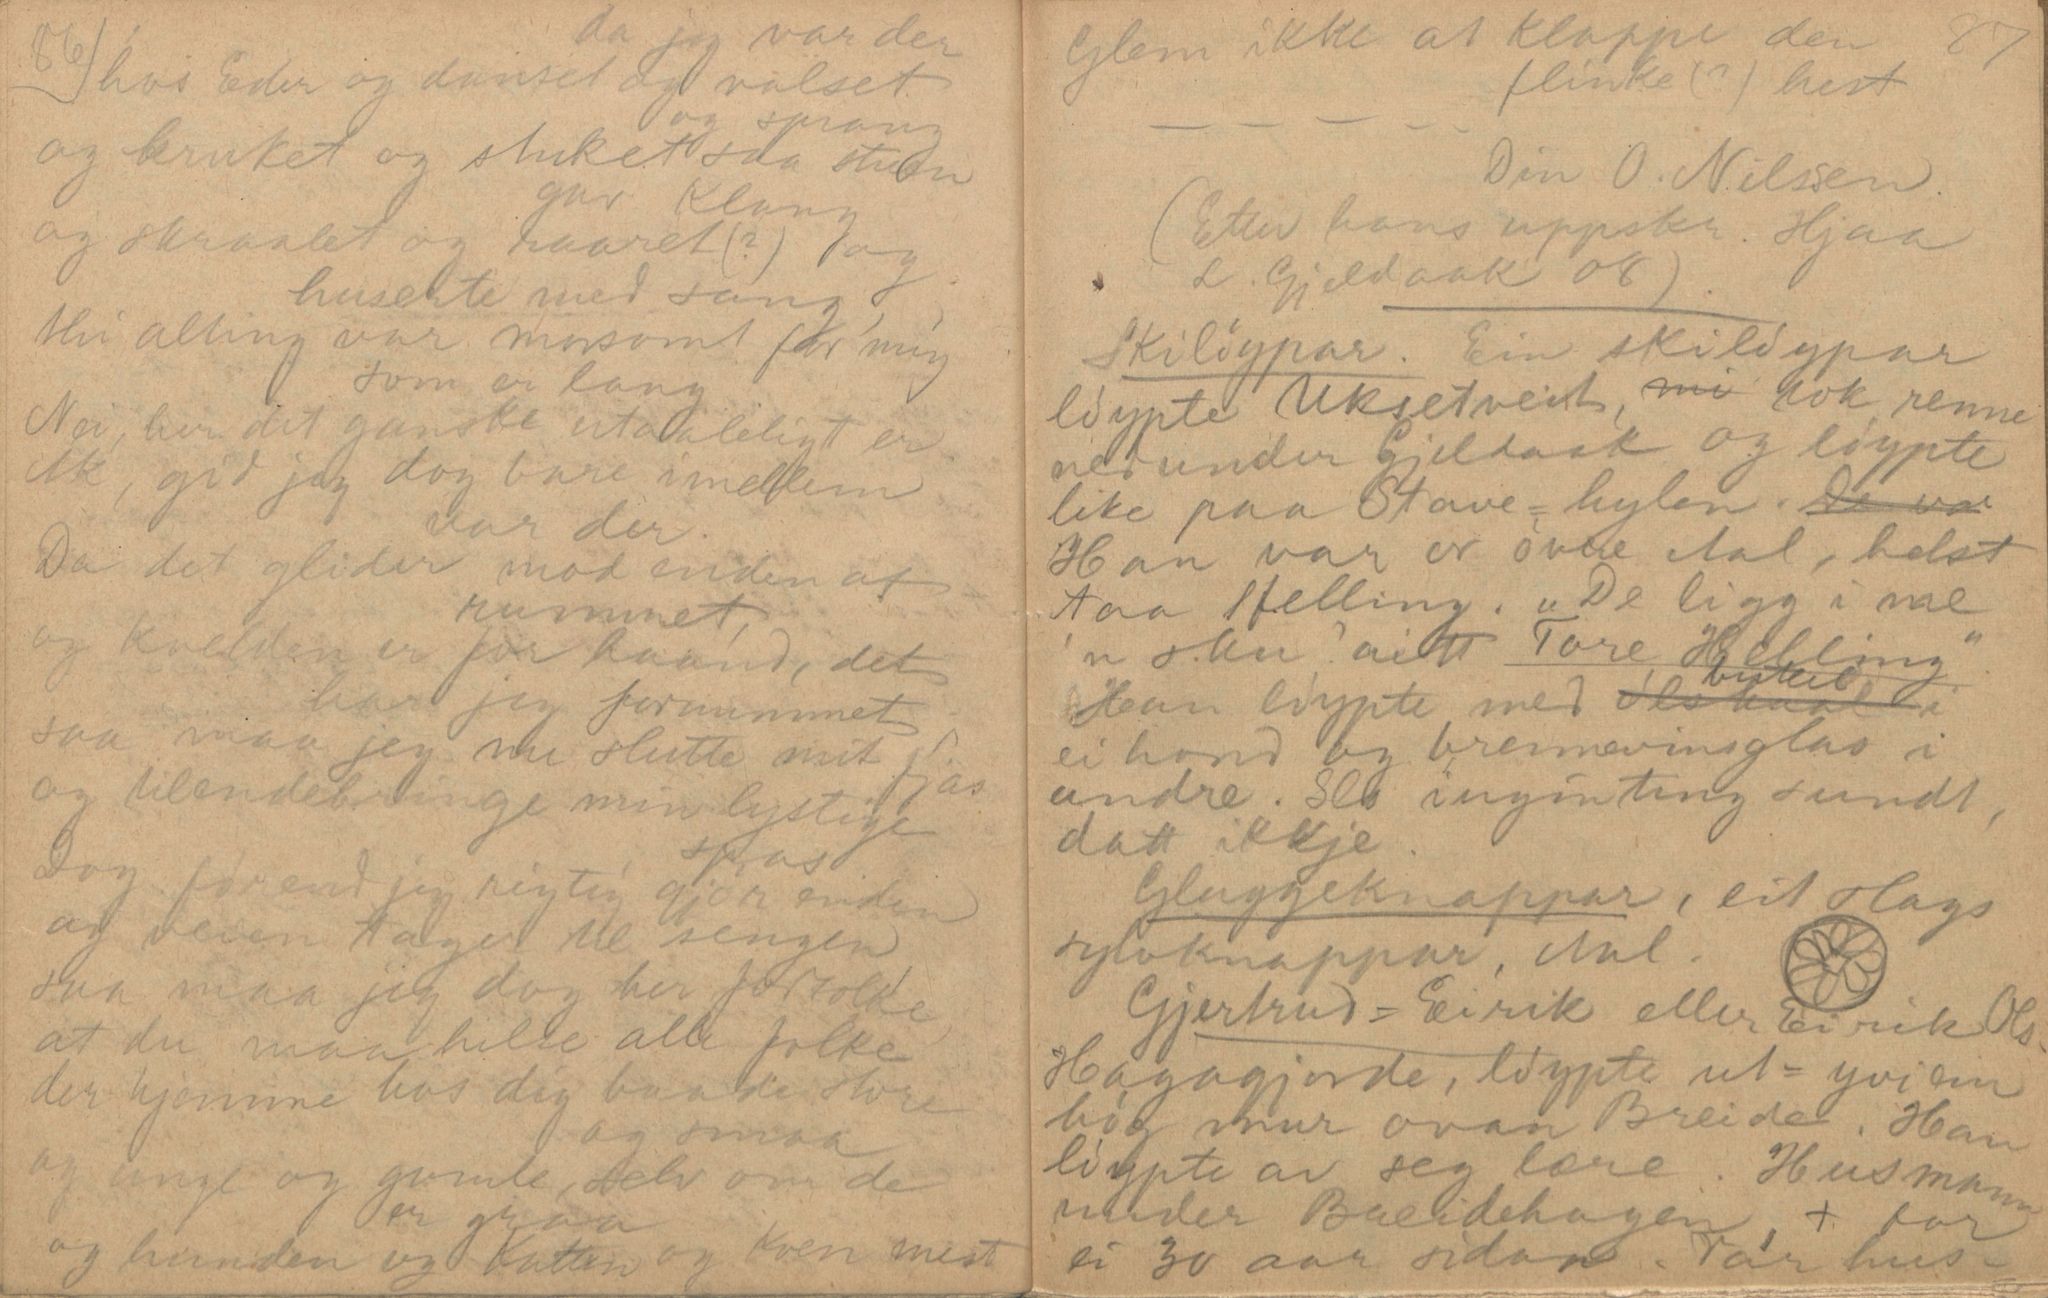 86)
da jeg var der
hos Eder og danset og valset
og sprang
og bruket og stuket saa stuen
gav klang
og skraalet og raaret (?) og
huserte med sang,
thi alting var morsomt for mig
som er lang
Nei, her det ganske utaaleligt er
Ak, gid jeg dog bare imellem
var der.
Da det glider mod enden af
rummet,
og kvelden er for haand, det
har jeg fornummet
saa maa jeg nu slutte mit fjas
og tilendebringe min lystige
spas
Dog forend jeg rigtig gjør enden
og veien tager til sengen
saa maa jeg dog her
at du maa helse alle folke
der hjemme hos dig baade store
og smaa
og unge og gamle, selv om de
er graa
og hunden og Katten og kven mest
87
Glem ikke at klappe den
flinke (?) hest
— — — — —
Din O. Nilssen.
(Etter hans uppskr. Hjaa
L. Gjeldaak 08).
Skilöypar. Ein skilöypar
löypte Uksetveit, mi tok renne
ned under Gjeldaak og löypte
like paa Stave=hylen. De var
Han var or övre Aal, helst
taa Helling. „De ligg i me
'n sku' aitt Tore Helling"
butel
Han löypte med ölskaal i
ei hond og brennevinsglas i
andre. Slo inginting sundt,
datt ikkje.
Gluggeknappar, eit slags
sylvknappar, Aal.
Gjertrud=Eirik eller Eirik Ols-
Hagagjorde, löypte ut=yvi ein
hög mur ovan Breide. Han
löypte av seg lære. Husmann
under Breidehagen, + for
ei 30 aar sidan. Faar hus-